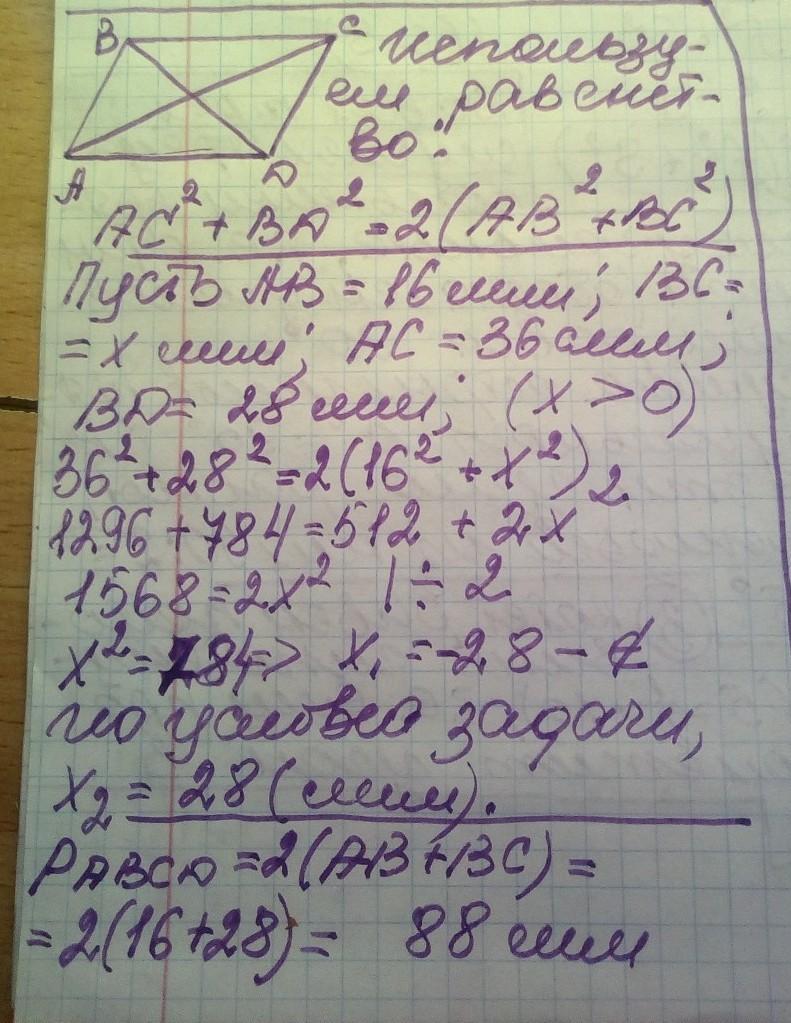 B C Используем
ем равенст-
во:
A D
AC² + BD² = 2(AB² + BC²)
Пусть AB = 16 мм; BC =
= x мм; AC = 36 мм;
BD = 28 мм; (x > 0)
36² + 28² = 2(16² + x²)
1296 + 784 = 512 + 2x²
1568 = 2x² | ÷ 2
x² = 784 => x₁ = -28 - ∉
по условию задачи,
x₂ = 28 (мм).
P ABCD = 2(AB + BC) =
= 2(16 + 28) = 88 мм